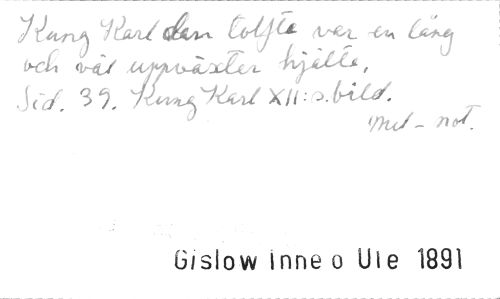 Kung Karl den tolfte var en lång
och väl uppväxter hjälte,
Sid. 39. Kung Karl XII:s bild.
Mel-not.
Gislow Inne o Ute 1891